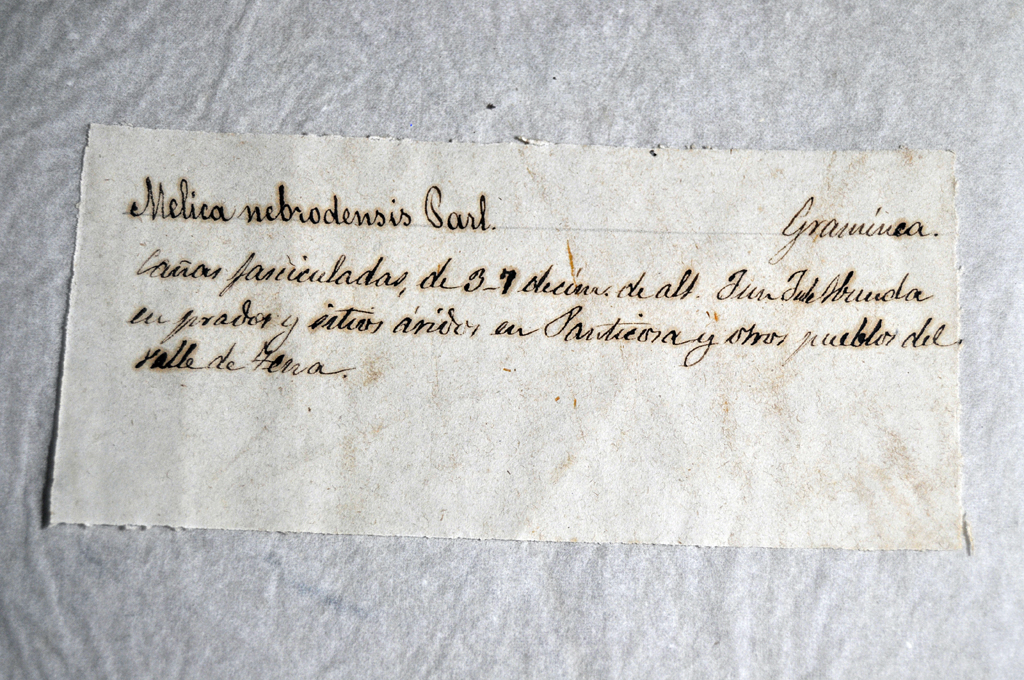 Melica nebrodensis Parl. Gramínea.
Cañas fasciculadas, de 3-7 decím. de alt. Jun Jul Abunda
en prados y sitios áridos en Panticosa y otros pueblos del
valle de Tena.